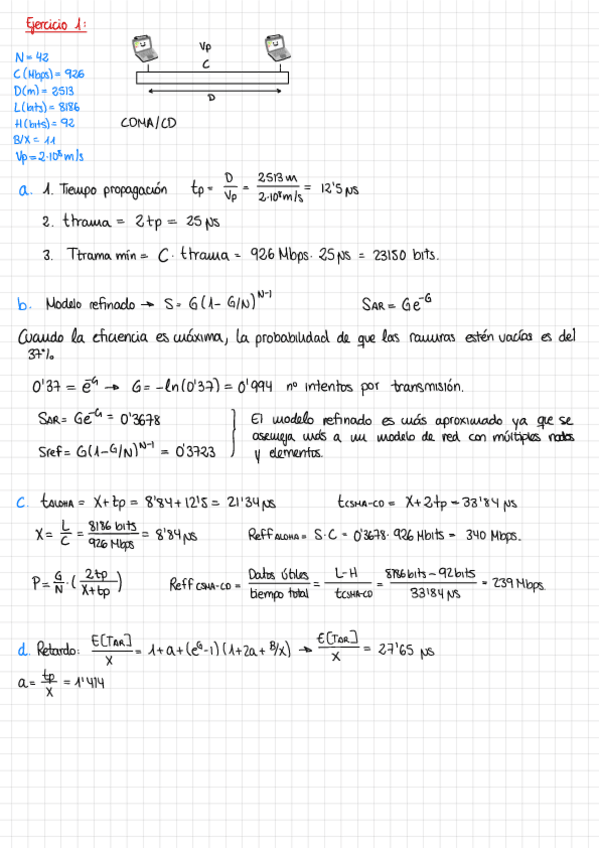 Ejercicio 1:
N = 42
C (Mbps) = 926
D(m) = 2513
L(bits) = 8186
H(bits) = 92
B/X = 11
Vp = 2·10⁸ m/s
Vp
C
D
CDMA/CD
a. 1. Tiempo propagación tp = D/Vp = 2513 m / 2·10⁸ m/s = 12'5 µs
2. ttrama = 2tp = 25 µs
3. Ttrama mín = C · ttrama = 926 Mbps · 25 µs = 23150 bits.
b. Modelo refinado → S = G(1 - G/N)^N-1 SAR = Ge^-G
Cuando la eficiencia es máxima, la probabilidad de que las ranuras estén vacías es del
37%
0'37 = e^-G → G = -ln(0'37) = 0'994 nº intentos por transmisión.
SAR = Ge^-G = 0'3678
Sref = G(1-G/N)^N-1 = 0'3723
El modelo refinado es más aproximado ya que se
asemeja más a un modelo de red con múltiples nodos
y elementos.
c. tALOHA = X + tp = 8'84 + 12'5 = 21'34 µs tCSMA-CD = X + 2tp = 33'84 µs
X = L/C = 8186 bits / 926 Mbps = 8'84 µs ReffALOHA = S·C = 0'3678 · 926 Mbits = 340 Mbps.
P = G/N · (2tp / X+tp) ReffCSMA-CD = Datos útiles / tiempo total = L-H / tCSMA-CD = 8186 bits - 92 bits / 33'84 µs = 239 Mbps
d. Retardo: E[TAR]/X = 1 + a + (e^G - 1)(1 + 2a + B/X) → E[TAR]/X = 27'65 µs
a = tp/X = 1'414